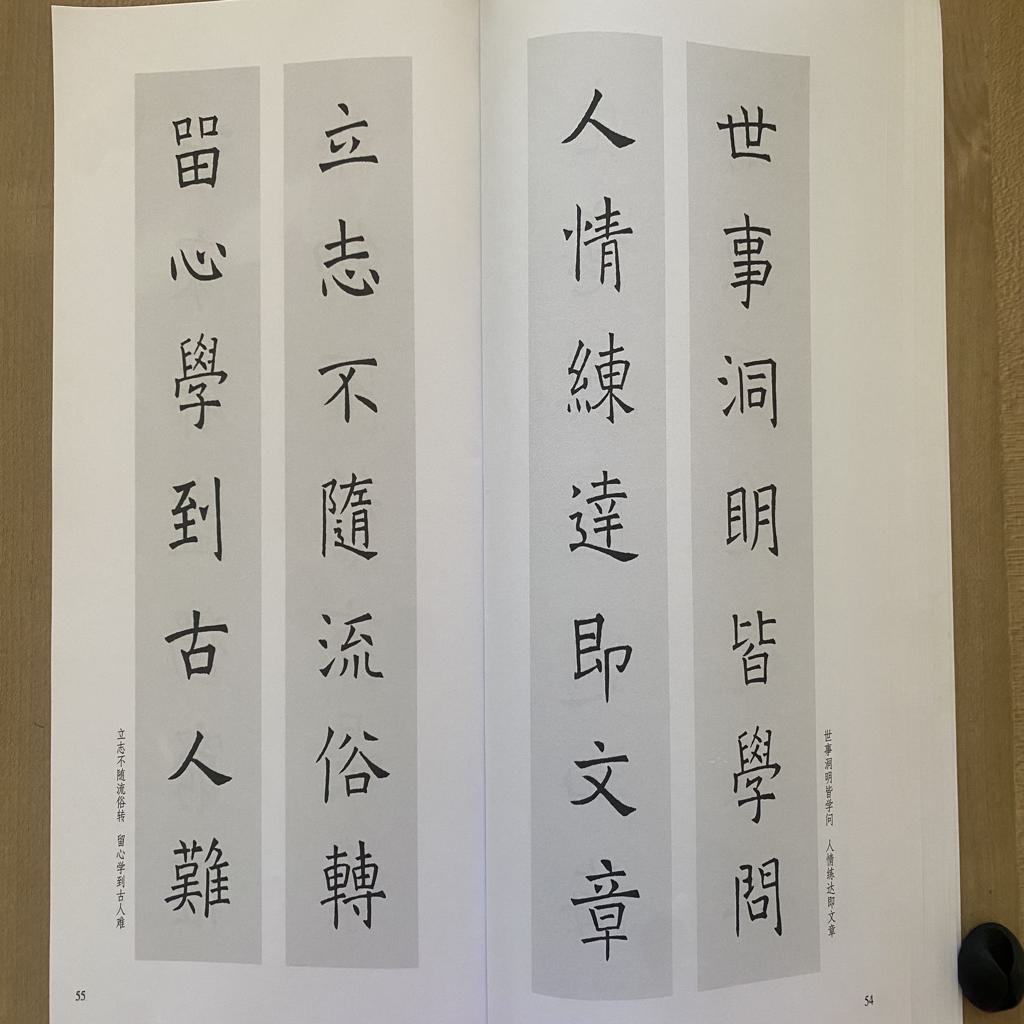 世事洞明皆學問
人情練達即文章
世事洞明皆学问 人情练达即文章
54
立志不隨流俗轉
留心學到古人難
立志不随流俗转 留心学到古人难
55